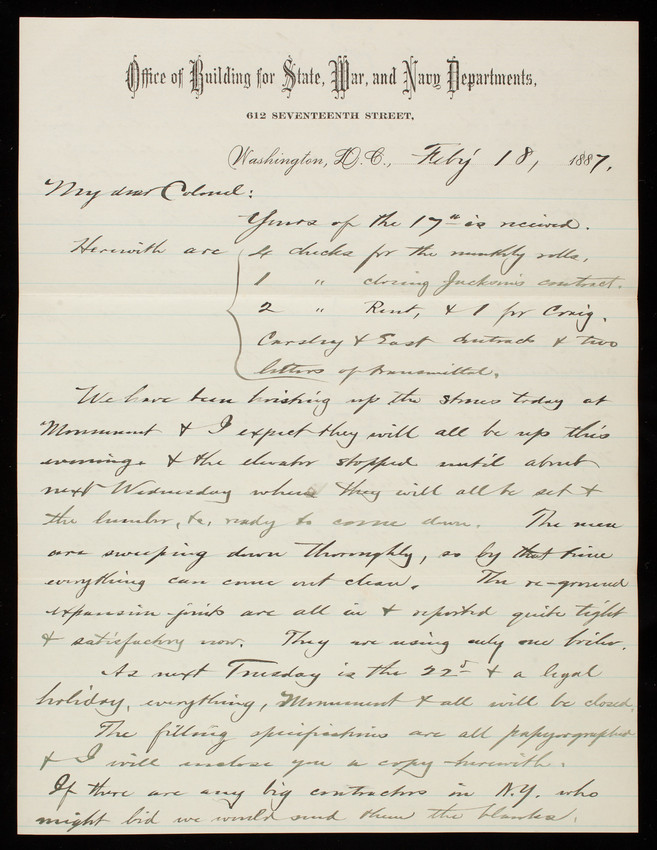 Office of Building for State, War, and Navy Departments,
612 SEVENTEENTH STREET,
Washington, D.C., Feby 18, 1887.
My dear Colonel:
Yours of the 17th is received.
Herewith are 4 checks for the monthly rolls,
1 " closing Jackson's contract.
2 " Rent, & 1 for Craig.
Carsley & East contracts & two
letters of transmittal.
We have been hoisting up the stones today at
Monument & I expect they will all be up this
evening & the elevator stopped until about
next Wednesday when they will all be set &
the lumber, &c, ready to come down. The men
are sweeping down thoroughly, so by that time
everything can come out clean. The re-ground
expansion joints are all in & reported quite tight
& satisfactory now. They are using only one boiler.
As next Tuesday is the 22d & a legal
holiday, everything, Monument & all will be closed.
The filling specifications are all papyrographed
& I will enclose you a copy herewith.
If there are any big contractors in N.Y. who
might bid we would send them the blanks.